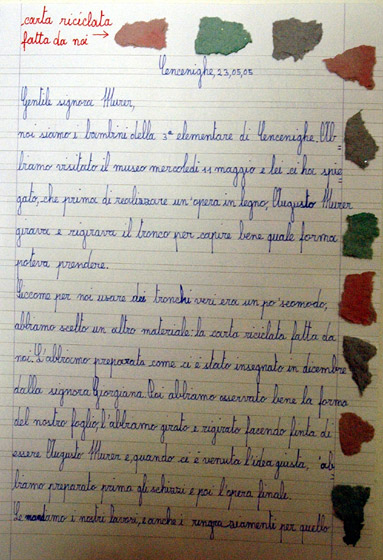 carta riciclata
fatta da noi →
Cencenighe, 23,05,05
Gentile signora Murer,
noi siamo i bambini della 3ª elementare di Cencenighe. Ab
biamo visitato il museo mercoledì 11 maggio e lei ci ha spie
gato, che prima di realizzare un'opera in legno, Augusto Murer
girava e rigirava il tronco per capire bene quale forma
poteva prendere.
Siccome per noi usare dei tronchi veri era un po' scomodo,
abbiamo scelto un altro materiale: la carta riciclata fatta da
noi. L'abbiamo preparata come ci è stato insegnato in dicembre
dalla signora Giorgiana. Poi abbiamo osservato bene la forma
del nostro foglio, l'abbiamo girato e rigirato facendo finta di
essere Augusto Murer e, quando ci è venuta l'idea giusta, ab
biamo preparato prima gli schizzi e poi l'opera finale.
Le mandiamo i nostri lavori, e anche i ringraziamenti per quello